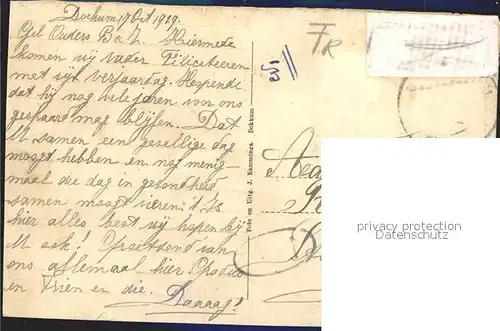 Dockum 17 Oct 1929.
Gel Ouders B & Z. Hiermede
komen wij vader Feliciteeren
met zijn verjaardag. Hopende
dat hij nog vele jaren van ons
gespaard mag blijfen. Dat
U samen een gesellige dag
moogt hebben en nog menig
maal die dag in gesondheid
samen moogt vieren. 't Is
hier alles best wij hopen bij
U ook! Groetsend van
ons allemaal hier
en Trien en die. Daaaag!
Foto en Uitg. J. Kamminga. Dokkum
FR
privacy protection
Datenschutz